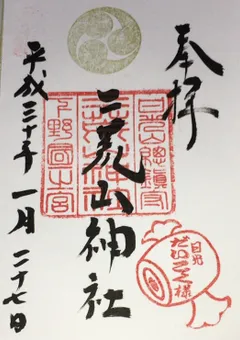 奉拝
日光総鎮守
二荒山神社
下野国一宮
平成三十年一月二十七日
日光
だいこく様